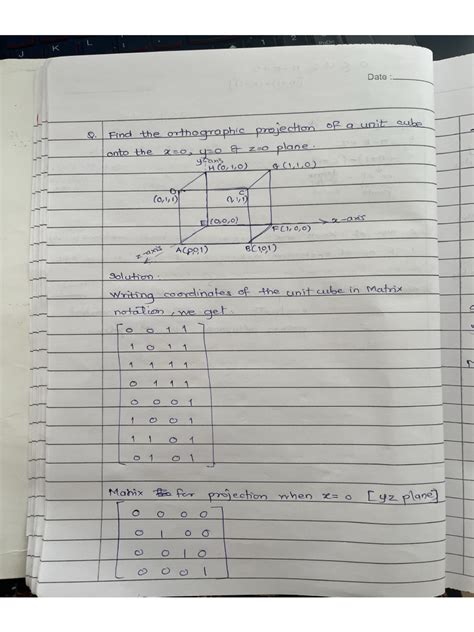 Date :
Q. Find the orthographic projection of a unit cube
onto the x=0, y=0 & z=0 plane.
y-axis
H(0,1,0) G(1,1,0)
D C
(0,1,1) (1,1,1)
E(0,0,0) x-axis
F(1,0,0)
z-axis
A(0,0,1) B(1,0,1)
Solution.
Writing coordinates of the unit cube in Matrix
notation, we get.
0 0 1 1
1 0 1 1
1 1 1 1
0 1 1 1
0 0 0 1
1 0 0 1
1 1 0 1
0 1 0 1
Matrix for projection when x=0 [yz plane]
0 0 0 0
0 1 0 0
0 0 1 0
0 0 0 1